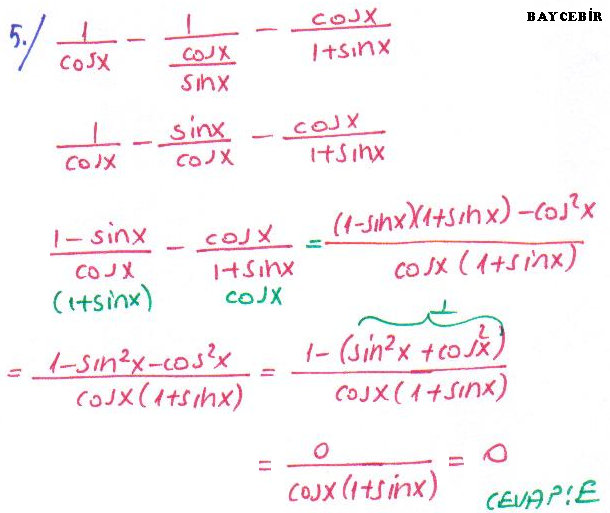 BAYCEBİR
5./ 1/cosx - 1/(cosx/sinx) - cosx/(1+sinx)
1/cosx - sinx/cosx - cosx/(1+sinx)
(1-sinx)/cosx - cosx/(1+sinx) = ((1-sinx)(1+sinx)-cos²x)/(cosx(1+sinx))
(1+sinx) cosx
1
= (1-sin²x-cos²x)/(cosx(1+sinx)) = (1-(sin²x+cos²x))/(cosx(1+sinx))
= 0/(cosx(1+sinx)) = 0
CEVAP:E